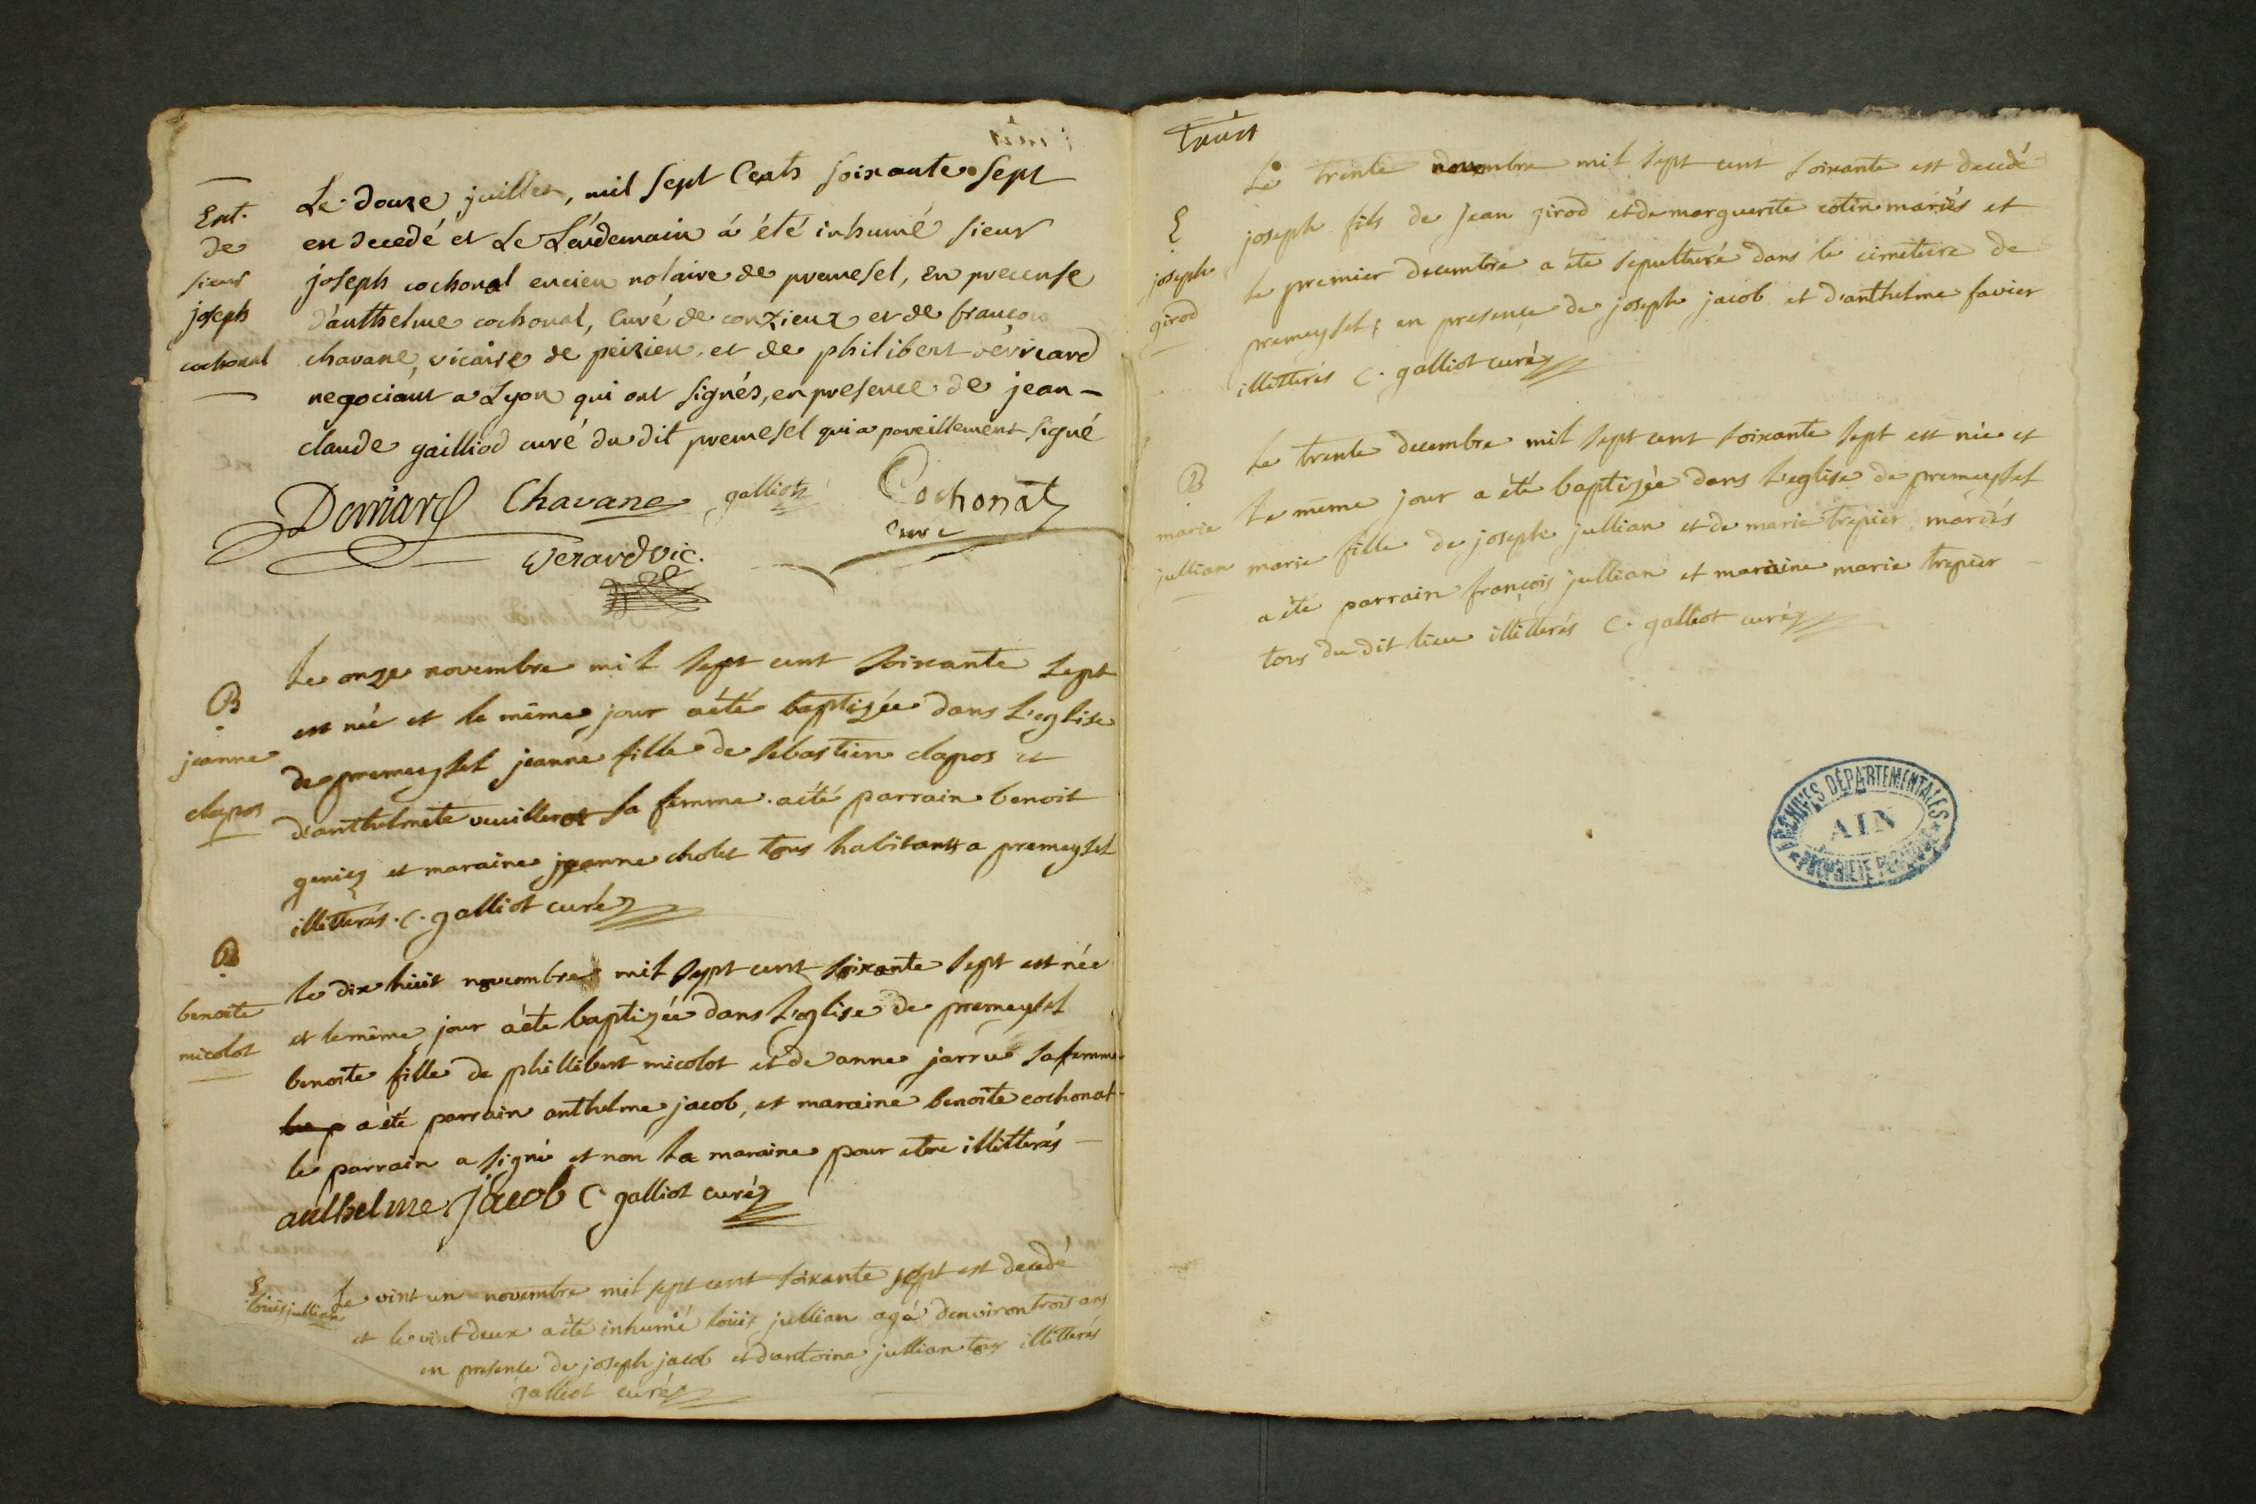 Ent.
de
sieur
joseph
cochonal
Le douze juillet, mil sept Cents soixante sept
en decedé et Le Lendemain á été inhumé sieur
joseph cochonal encien notaire de premesel, en precense
d'anthelme cochonal, Curé de conzieux et de françois
chavane, vicaire de peizieu et de philibert
negociant a Lyon qui ont signés, en presence de jean-
claude gailliod curé du dit premesel qui a pareillement signé
Chavane galliot Cochonat
curé
Verard vic.
B
jeanne
clapos
Le onze novembre mil sept cent soixante sept
est née et le même jour a été baptizée dans l'eglise
de premeyzel jeanne fille de sebastien clapos et
d'anthelmete sa femme. a été parrain benoit
geniez et maraine jeanne cholet tous habitants a premeyzel
illitterés. C. galliot curé
B
benoite
micolot
le dix huit novembre mil sept cent soixante sept est née
et le même jour a été baptizée dans l'eglise de premeyzel
benoite fille de phillibert micolot et de anne jarru sa femme
a été parrain anthelme jacob, et maraine benoite cochonat
le parrain a signé et non la maraine pour etre illitterés
anthelme jacob C. galliot curé
E
louis jullian
Le vint un novembre mil sept cent soixante sept est decedé
et le vint deux a été inhumé louis jullian agé d'environ trois ans
en presence de joseph jacob et d'antoine jullian tous illitterés
galliot curé
E
joseph
girod
Le trente novembre mil sept cent soixante est decedé
joseph fils de jean girod et de marguerite cotin mariés et
le premier decembre a été sepulturé dans le cimetiere de
premeyzel; en presence de joseph jacob et d'anthelme favier
illitterés C. galliot curé
B
marie
jullian
Le trente decembre mil sept cent soixante sept est née et
le même jour a été baptizée dans l'eglise de premeyzel
marie fille de joseph jullian et de marie trepier mariés
a été parrain françois jullian et maraine marie trepier
tous du dit lieu illitterés C. galliot curé
ARCHIVES DÉPARTEMENTALES
AIN
PROPRIÉTÉ PUBLIQUE